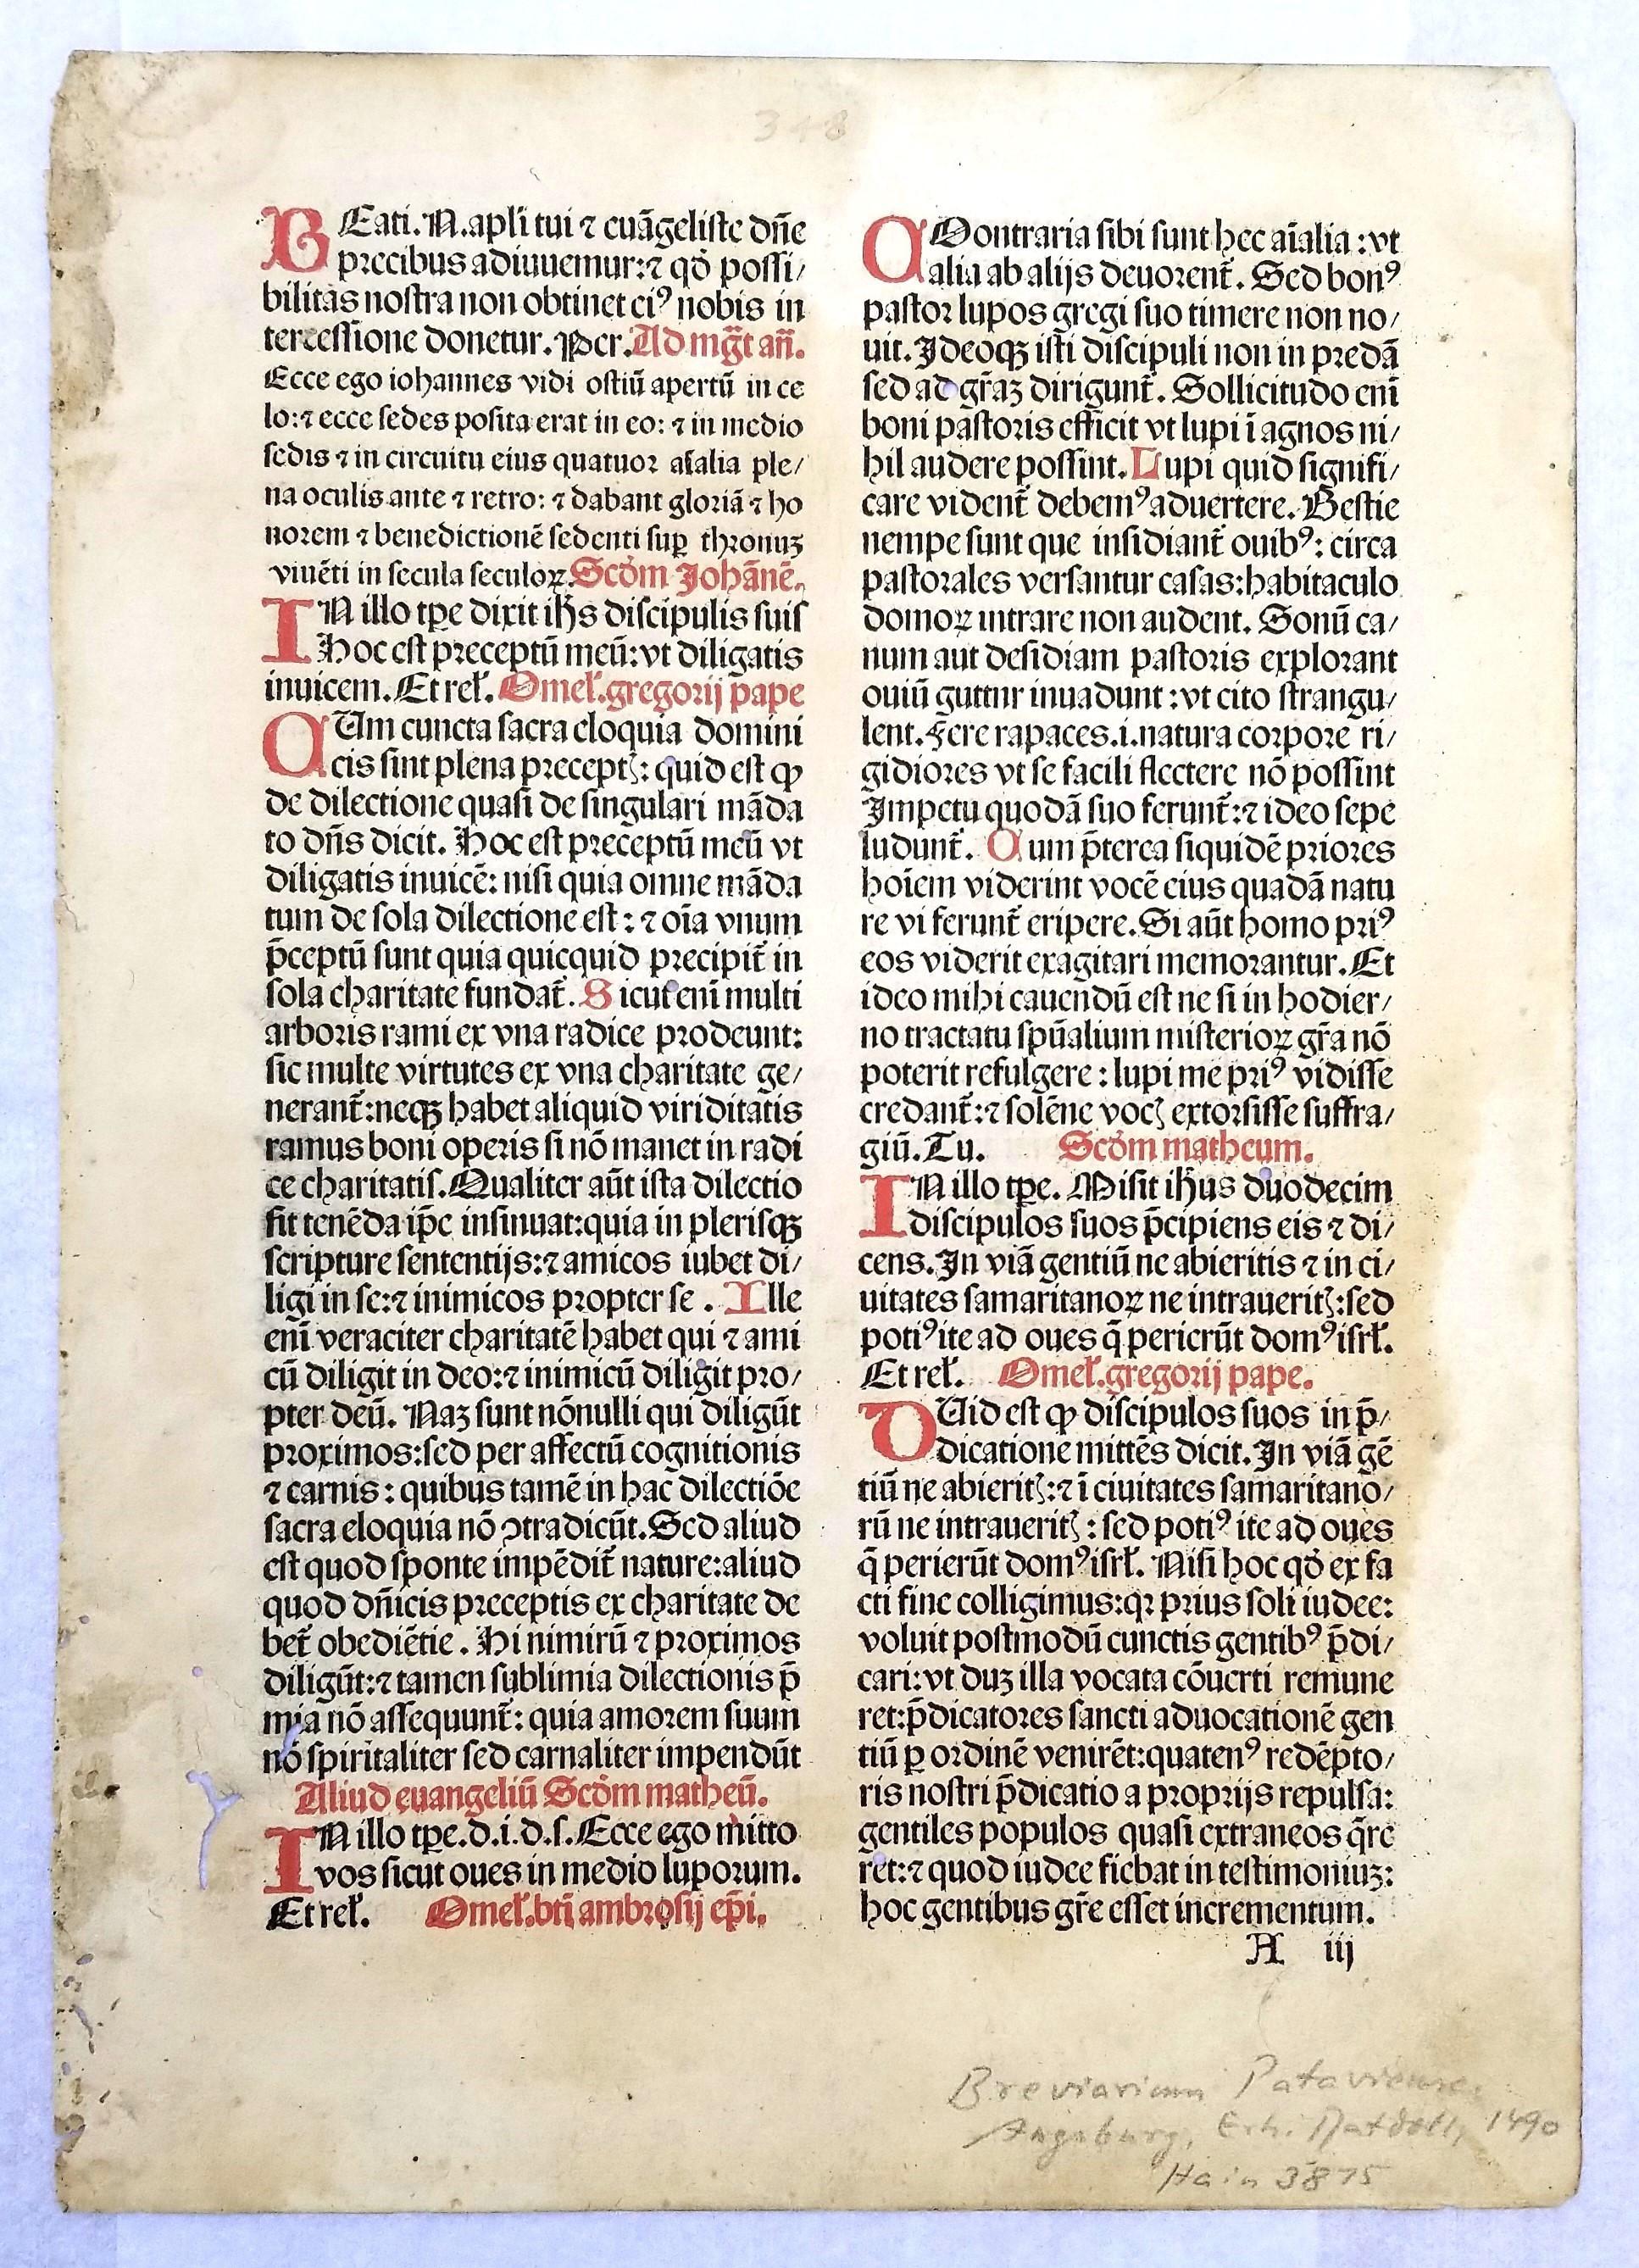 348
BEati. N. apl̄i tui ⁊ euāgeliste dn̄e
precibus adiuuemur: ⁊ qd̓ possi/
bilitas nostra non obtinet eiꝰ nobis in
tercessione donetur. Per. Ad mḡt an̄.
Ecce ego iohannes vidi ostiū apertū in ce
lo: ⁊ ecce sedes posita erat in eo: ⁊ in medio
sedis ⁊ in circuitu eius quatuor aīalia ple/
na oculis ante ⁊ retro: ⁊ dabant gloriā ⁊ ho
norem ⁊ benedictionē sedenti suꝑ thronuꝫ
viuēti in secula seculoꝝ. Scd̓m Johānē.
IN illo tꝑe dixit ih̄s discipulis suis
Hoc est preceptū meū: vt diligatis
inuicem. Et rel̓. Omel̓. gregorij pape
CUm cuncta sacra eloquia domini
cis sint plena preceptꝭ: quid est ꝙ
de dilectione quasi de singulari māda
to dn̄s dicit. Hoc est preceptū meū vt
diligatis inuicē: nisi quia omne māda
tum de sola dilectione est: ⁊ oīa vnum
p̄ceptū sunt quia quicquid precipit᷑ in
sola charitate fundat᷑. Sicut eni multi
arboris rami ex vna radice prodeunt:
sic multe virtutes ex vna charitate ge/
nerant᷑: neqꝫ habet aliquid viriditatis
ramus boni operis si nō manet in radi
ce charitatis. Qualiter aūt ista dilectio
sit tenēda ip̄e insinuat: quia in plerisqꝫ
scripture sententijs: ⁊ amicos iubet di/
ligi in se: ⁊ inimicos propter se. Ille
enī veraciter charitatē habet qui ⁊ ami
cū diligit in deo: ⁊ inimicū diligit pro/
pter deū. Naꝫ sunt nōnulli qui diligūt
proximos: sed per affectū cognitionis
⁊ carnis: quibus tamē in hac dilectiōe
sacra eloquia nō ꝯtradicūt. Sed aliud
est quod sponte impēdit᷑ nature: aliud
quod dn̄icis preceptis ex charitate de
bet᷑ obediētie. Hi nimirū ⁊ proximos
diligūt: ⁊ tamen sublimia dilectionis p̄
mia nō assequunt᷑: quia amorem suum
nō spiritaliter sed carnaliter impendūt
Aliud euangeliū Scd̓m matheū.
IN illo tꝑe. d. i. d. s. Ecce ego mitto
vos sicut oues in medio luporum.
Et rel̓. Omel̓. btī ambrosij ep̄i.
COontraria sibi sunt hec aīalia: vt
alia ab alijs deuorent᷑. Sed bonꝰ
pastor lupos gregi suo timere non no/
uit. Ideoqꝫ isti discipuli non in predā
sed ad gr̄aꝫ dirigunt᷑. Sollicitudo enī
boni pastoris efficit vt lupi ī agnos ni/
hil audere possint. Lupi quid signifi/
care vident᷑ debemꝰ aduertere. Bestie
nempe sunt que insidiant᷑ ouibꝰ: circa
pastorales versantur casas: habitaculo
domoꝝ intrare non audent. Sonū ca/
num aut desidiam pastoris explorant
ouiū guttur inuadunt: vt cito strangu/
lent. Fere rapaces. i. natura corpore ri/
gidiores vt se facili flectere nō possint
Impetu quodā suo ferunt᷑: ⁊ ideo sepe
ludunt᷑. Cum p̄terea siquidē priores
hoīem viderint vocē eius quadā natu
re vi ferunt᷑ eripere. Si aūt homo priꝰ
eos viderit exagitari memorantur. Et
ideo mihi cauendū est ne si in hodier/
no tractatu spūalium misterioꝝ gr̄a nō
poterit refulgere: lupi me priꝰ vidisse
credant᷑: ⁊ solēne vocꝭ extorsisse suffra/
giū. Tu. Scd̓m matheum.
IN illo tꝑe. Misit ih̄us duodecim
discipulos suos p̄cipiens eis ⁊ di/
cens. In viā gentiū ne abieritis ⁊ in ci/
uitates samaritanoꝝ ne intraueritꝭ: sed
potiꝰ ite ad oues q̄ perierūt domꝰ isrl̓.
Et rel̓. Omel̓. gregorij pape.
QUid est ꝙ discipulos suos in p̄/
dicatione mittēs dicit. In viā gē
tiū ne abieritꝭ: ⁊ ī ciuitates samaritano/
rū ne intraueritꝭ: sed potiꝰ ite ad oues
q̄ perierūt domꝰ isrl̓. Nisi hoc qd̓ ex fa
cti fine colligimus: qꝛ prius soli iudee:
voluit postmodū cunctis gentibꝰ p̄di/
cari: vt duꝫ illa vocata cōuerti remune
ret: p̄dicatores sancti aduocationē gen
tiū ꝑ ordinē venirēt: quatenꝰ redēpto/
ris nostri p̄dicatio a proprijs repulsa:
gentiles populos quasi extraneos q̄re
ret: ⁊ quod iudee fiebat in testimoniuꝫ:
hoc gentibus gr̄e esset incrementum.
A iij
Breviarium Pataviense.
Augsburg, Erh. Ratdolt, 1490
Hain 3875